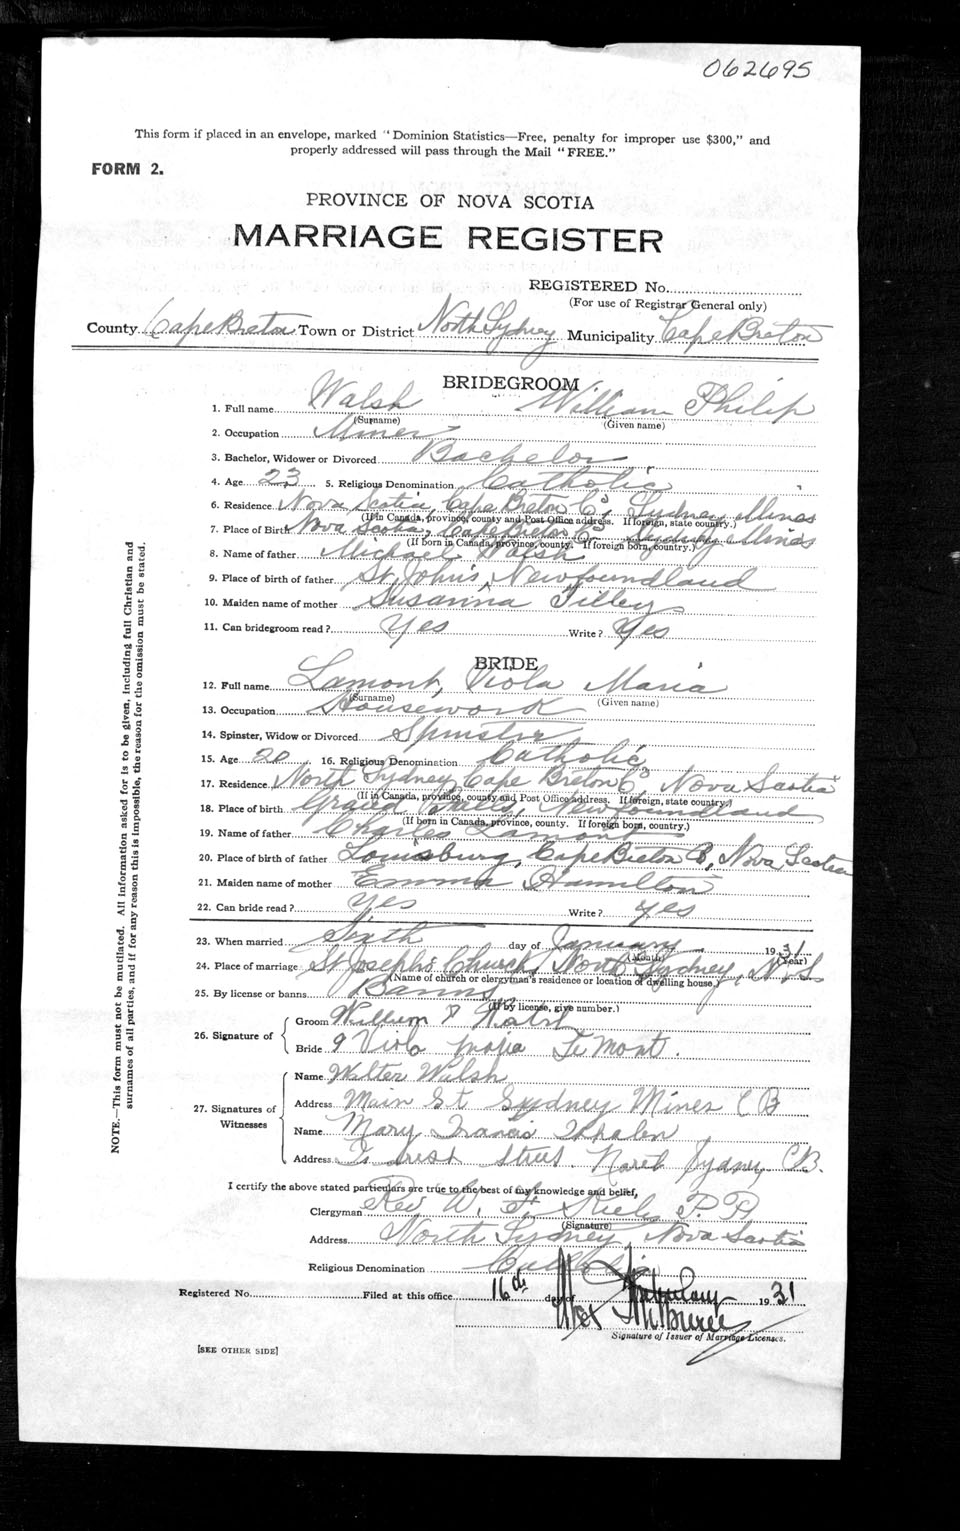 062695
This form if placed in an envelope, marked "Dominion Statistics—Free, penalty for improper use $300," and
properly addressed will pass through the Mail "FREE."
FORM 2.
PROVINCE OF NOVA SCOTIA
MARRIAGE REGISTER
REGISTERED No.
(For use of Registrar General only)
County Cape Breton Town or District North Sydney Municipality Cape Breton
BRIDEGROOM
1. Full name Walsh William Philip
(Surname) (Given name)
2. Occupation Miner
3. Bachelor, Widower or Divorced Bachelor
4. Age 23 5. Religious Denomination Catholic
6. Residence Nova Scotia, Cape Breton Co, Sydney Mines
(If in Canada, province, county and Post Office address. If foreign, state country.)
7. Place of Birth Nova Scotia, Cape Breton Co Sydney Mines
(If born in Canada, province, county. If foreign born, country.)
8. Name of father Michael Walsh
9. Place of birth of father St. John's, Newfoundland
10. Maiden name of mother Susanna Tilley
11. Can bridegroom read? Yes Write? Yes
BRIDE
12. Full name Lamont, Viola Maria
(Surname) (Given name)
13. Occupation Housework
14. Spinster, Widow or Divorced Spinster
15. Age 20 16. Religious Denomination Catholic
17. Residence North Sydney Cape Breton Co, Nova Scotia
(If in Canada, province, county and Post Office address. If foreign, state country.)
18. Place of birth Grand Newfoundland
(If born in Canada, province, county. If foreign born, country.)
19. Name of father Charles Lamont
20. Place of birth of father Louisburg, Cape Breton Nova Scotia
21. Maiden name of mother Emma Hamilton
22. Can bride read? Yes Write? yes
23. When married Sixth day of January 1931
(Month) (Year)
24. Place of marriage St Joseph's Church, North Sydney, N.S
(Name of church or clergyman's residence or location of dwelling house.)
25. By license or banns Banns
(If by license, give number.)
26. Signature of
Groom William P Walsh
Bride Viola Maria LeMont.
27. Signatures of
Witnesses
Name Walter Walsh
Address Main St Sydney Mines C B
Name Mary Francis Whalen
Address Street. North Sydney CB.
I certify the above stated particulars are true to the best of my knowledge and belief,
Clergyman Rev W. F. Kiely P.P.
(Signature)
Address North Sydney, Nova Scotia
Religious Denomination Catholic
Registered No. Filed at this office 16th day of 1931
Signature of Issuer of Marriage Licenses.
[SEE OTHER SIDE]
NOTE.—This form must not be mutilated. All information asked for is to be given, including full Christian and
surnames of all parties, and if for any reason this is impossible, the reason for the omission must be stated.